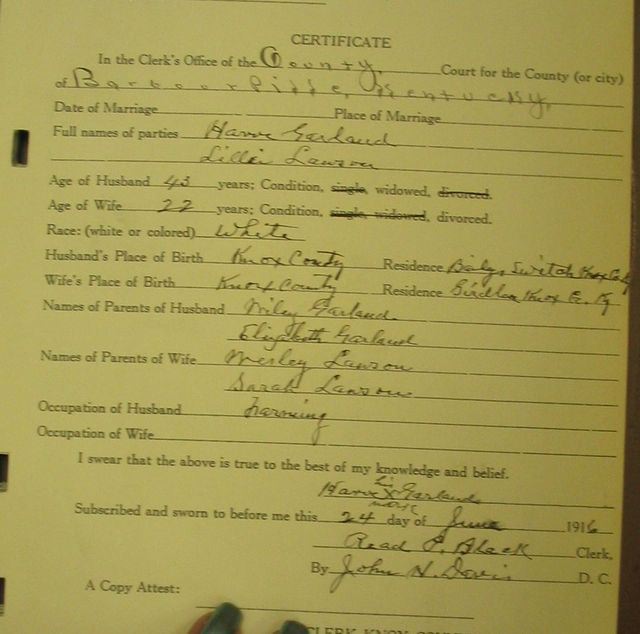 CERTIFICATE
In the Clerk's Office of the County, Court for the County (or city)
of Barbourville, Kentucky,
Date of Marriage Place of Marriage
Full names of parties Harve Garland
Lillie Lawson
Age of Husband 43 years; Condition, single, widowed, divorced.
Age of Wife 22 years; Condition, single, widowed, divorced.
Race: (white or colored) White
Husband's Place of Birth Knox County Residence Switch Knox
Wife's Place of Birth Knox County Residence Knox Co. Ky
Names of Parents of Husband Wiley Garland
Elizabeth Garland
Names of Parents of Wife Wesley Lawson
Sarah Lawson
Occupation of Husband Farming
Occupation of Wife
I swear that the above is true to the best of my knowledge and belief.
his
Harve X Garland
mark
Subscribed and sworn to before me this 24 day of June 1916
Read P. Black Clerk,
By John H. Davis D. C.
A Copy Attest:
CLERK KNOX